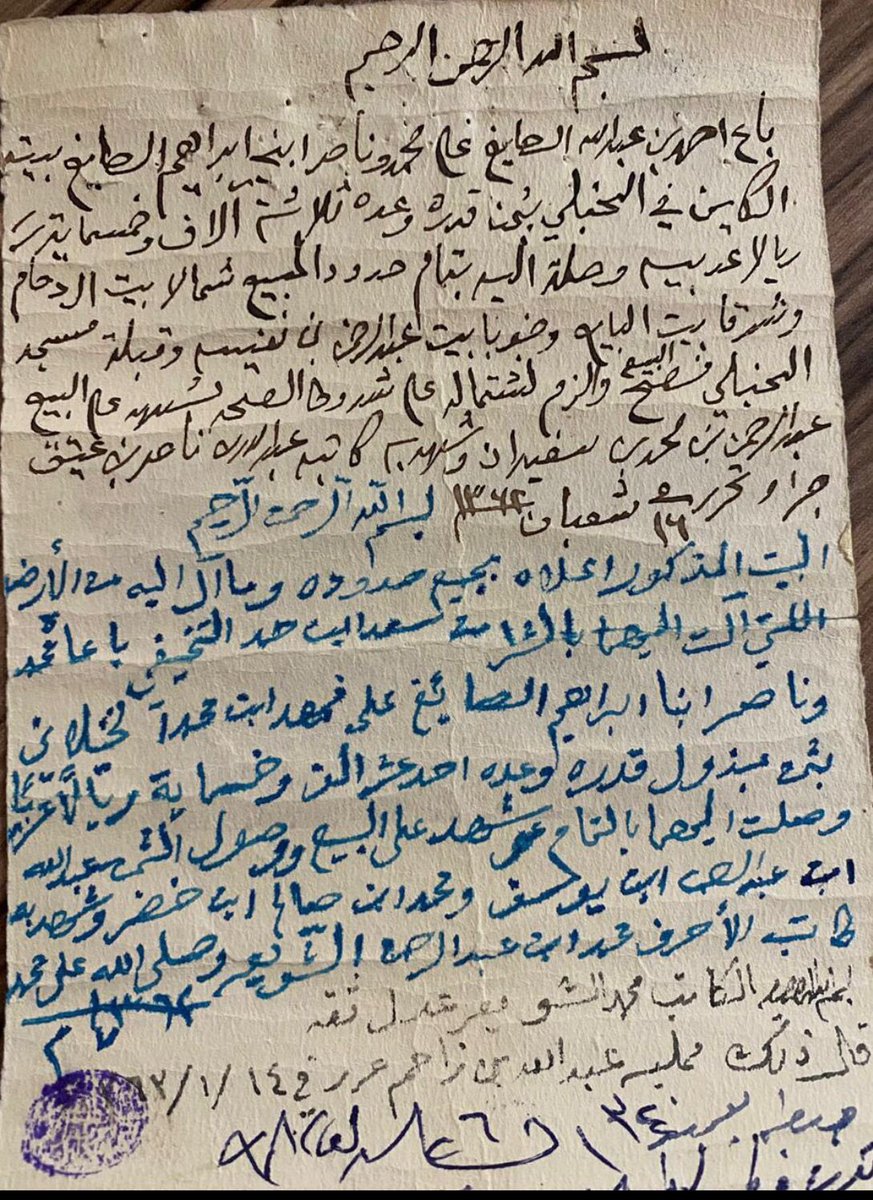 بسم الله الرحمن الرحيم
باع احمد بن عبدالله الصايغ على محمد وناصر ابني ابراهيم الصايغ بيته
الكاين في الحنبلي بثمن قدره وعده ثلاثة آلاف وخمسماية
ريالا عربيه وصلة اليه بتمام حدود المبيع شمالا بيت الدحام
وشرقا بيت البايع وجنوبا بيت عبدالرحمن بن نفيسه وقبلة مسجد
الحنبلي فصح البيع والزم لشتماله على شروط الصحه شهد على البيع
عبدالرحمن بن محمد بن سفيران وشهد به كاتبه عبدالله ناصر بن عتيق
جرا وتحرر ١٦ شعبان ١٣٦٢
بسم الله الرحمن الرحيم
البيت المذكور اعلاه بجميع حدوده وما آل اليه من الأرض
اللتي آلت اليهما بالشرا من سعد ابن حمد باعا محمد
وناصر ابنا ابراهيم الصائغ على فهد ابن محمد
بثمن مبذول قدره وعده احد عشر الف وخسماية ريالاً عربيًا
وصلت اليهما بالتمام شهد على البيع ووصول الثمن عبدالله
ابن عبدالرحمن ابن يوسف ومحمد ابن صالح ابن خضر وشهد به
كاتب الأحرف محمد ابن عبدالرحمن الشويعر وصلى الله على محمد
الكاتب محمد الشويعر عدل ثقه
قال ذلك ممليه عبدالله بن زاحم حرر في ١٤/١/٦٣